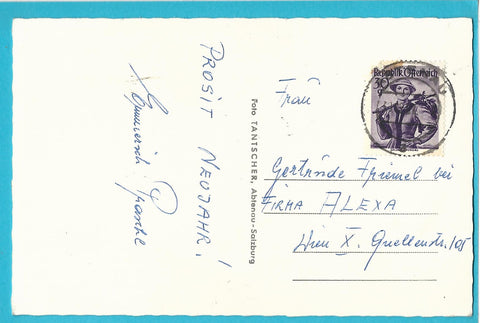 PROSIT NEUJAHR!
Foto TANTSCHER, Abtenau-Salzburg
Republik Österreich
30
Frau
Gertrude Friemel bei
FIRMA ALEXA
Wien X. Quellenstr. 105